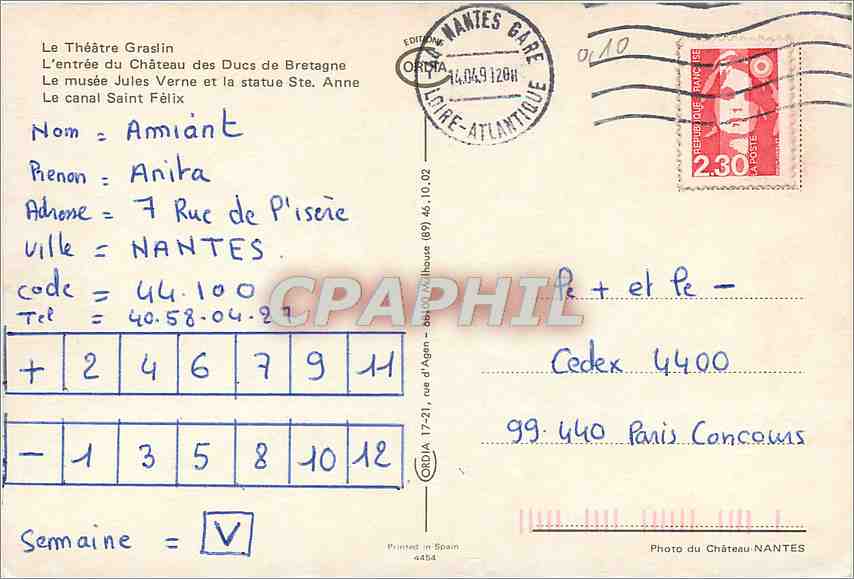 Le Théâtre Graslin
L'entrée du Château des Ducs de Bretagne
Le musée Jules Verne et la statue Ste. Anne
Le canal Saint Félix
Nom = Amiant
Prenon = Anita
Adresse = 7 Rue de l'isère
Ville = NANTES.
code = 44.100
Tel = 40.58.04.27
+ 2 4 6 7 9 11
- 1 3 5 8 10 12
Semaine = V
EDITIONS
ORDIA
NANTES GARE
LOIRE-ATLANTIQUE
0,10
RÉPUBLIQUE FRANÇAISE
2,30
LA POSTE
ORDIA 17-21, rue d'Agen - 68100 Mulhouse (89) 46.10.02
CPAPHIL
Le + et le -
Cedex 4400
99.440 Paris Concours
Printed in Spain
4454
Photo du Château-NANTES